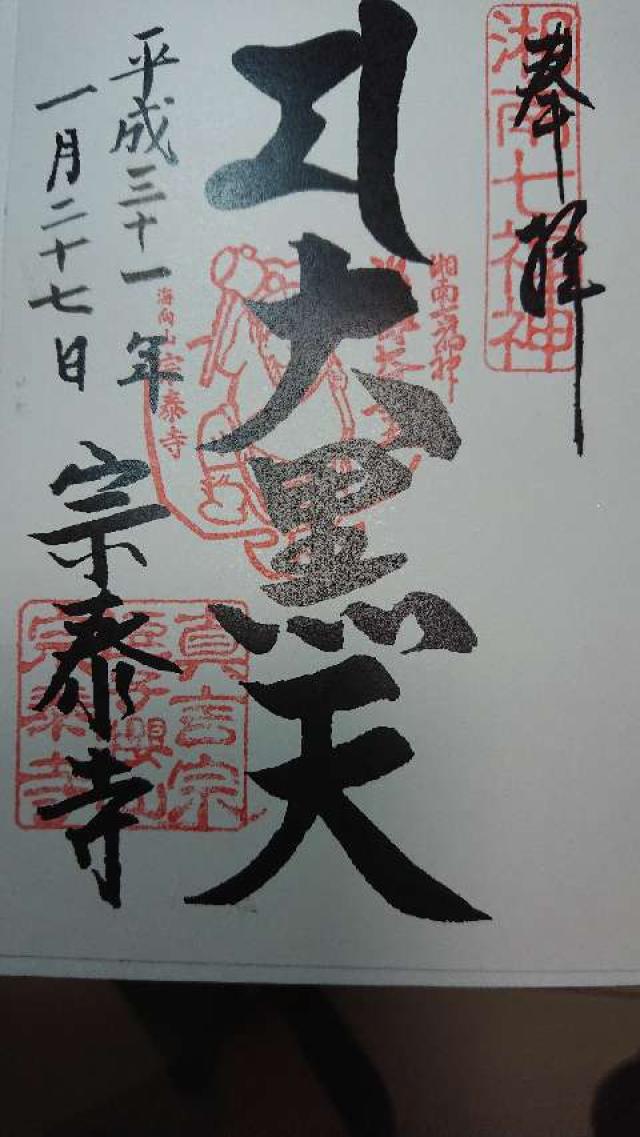 奉拝
湘南七福神
大黒天
湘南七福神
海向山宗泰寺
平成三十一年
一月二十七日
宗泰寺
真言宗
宗泰寺